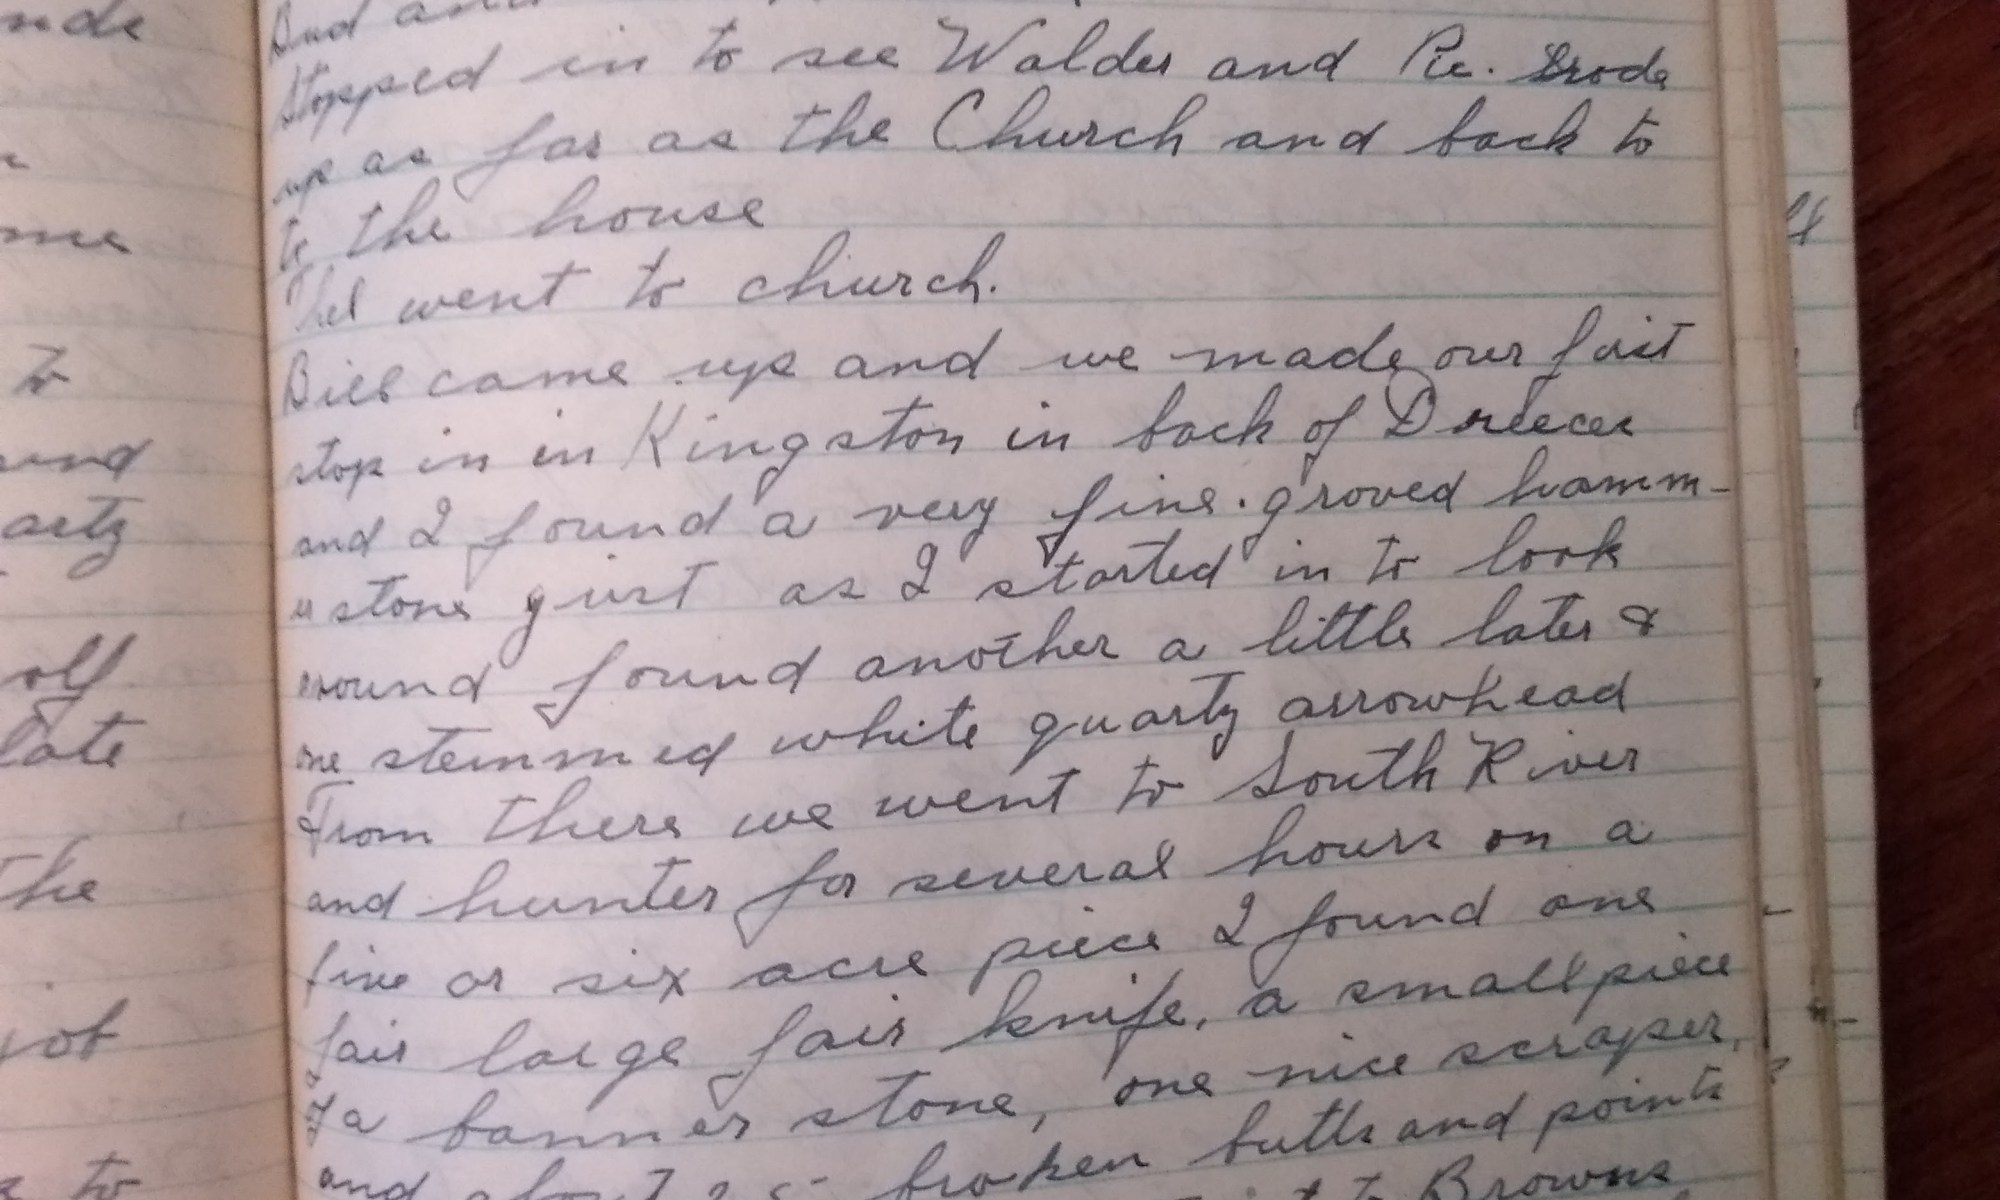 nde
me
to
and
artz
olf
late
the
job
to
And
stopped in to see Walder and Pic. Srode
up as far as the Church and back to
to the house
Thel went to church.
Bill came up and we made our fist
stop in in Kingston in back of
and I found a very fine groved hamm-
er stone gust as I started in to look
around found another a little later &
one stemmed white quartz arrowhead
From there we went to South River
and hunter for several hours on a
five or six acre piece I found one
fair large fair knife, a small piece
of a banner stone, one nice scraper,
and about 25 broken butts and points
to Browns